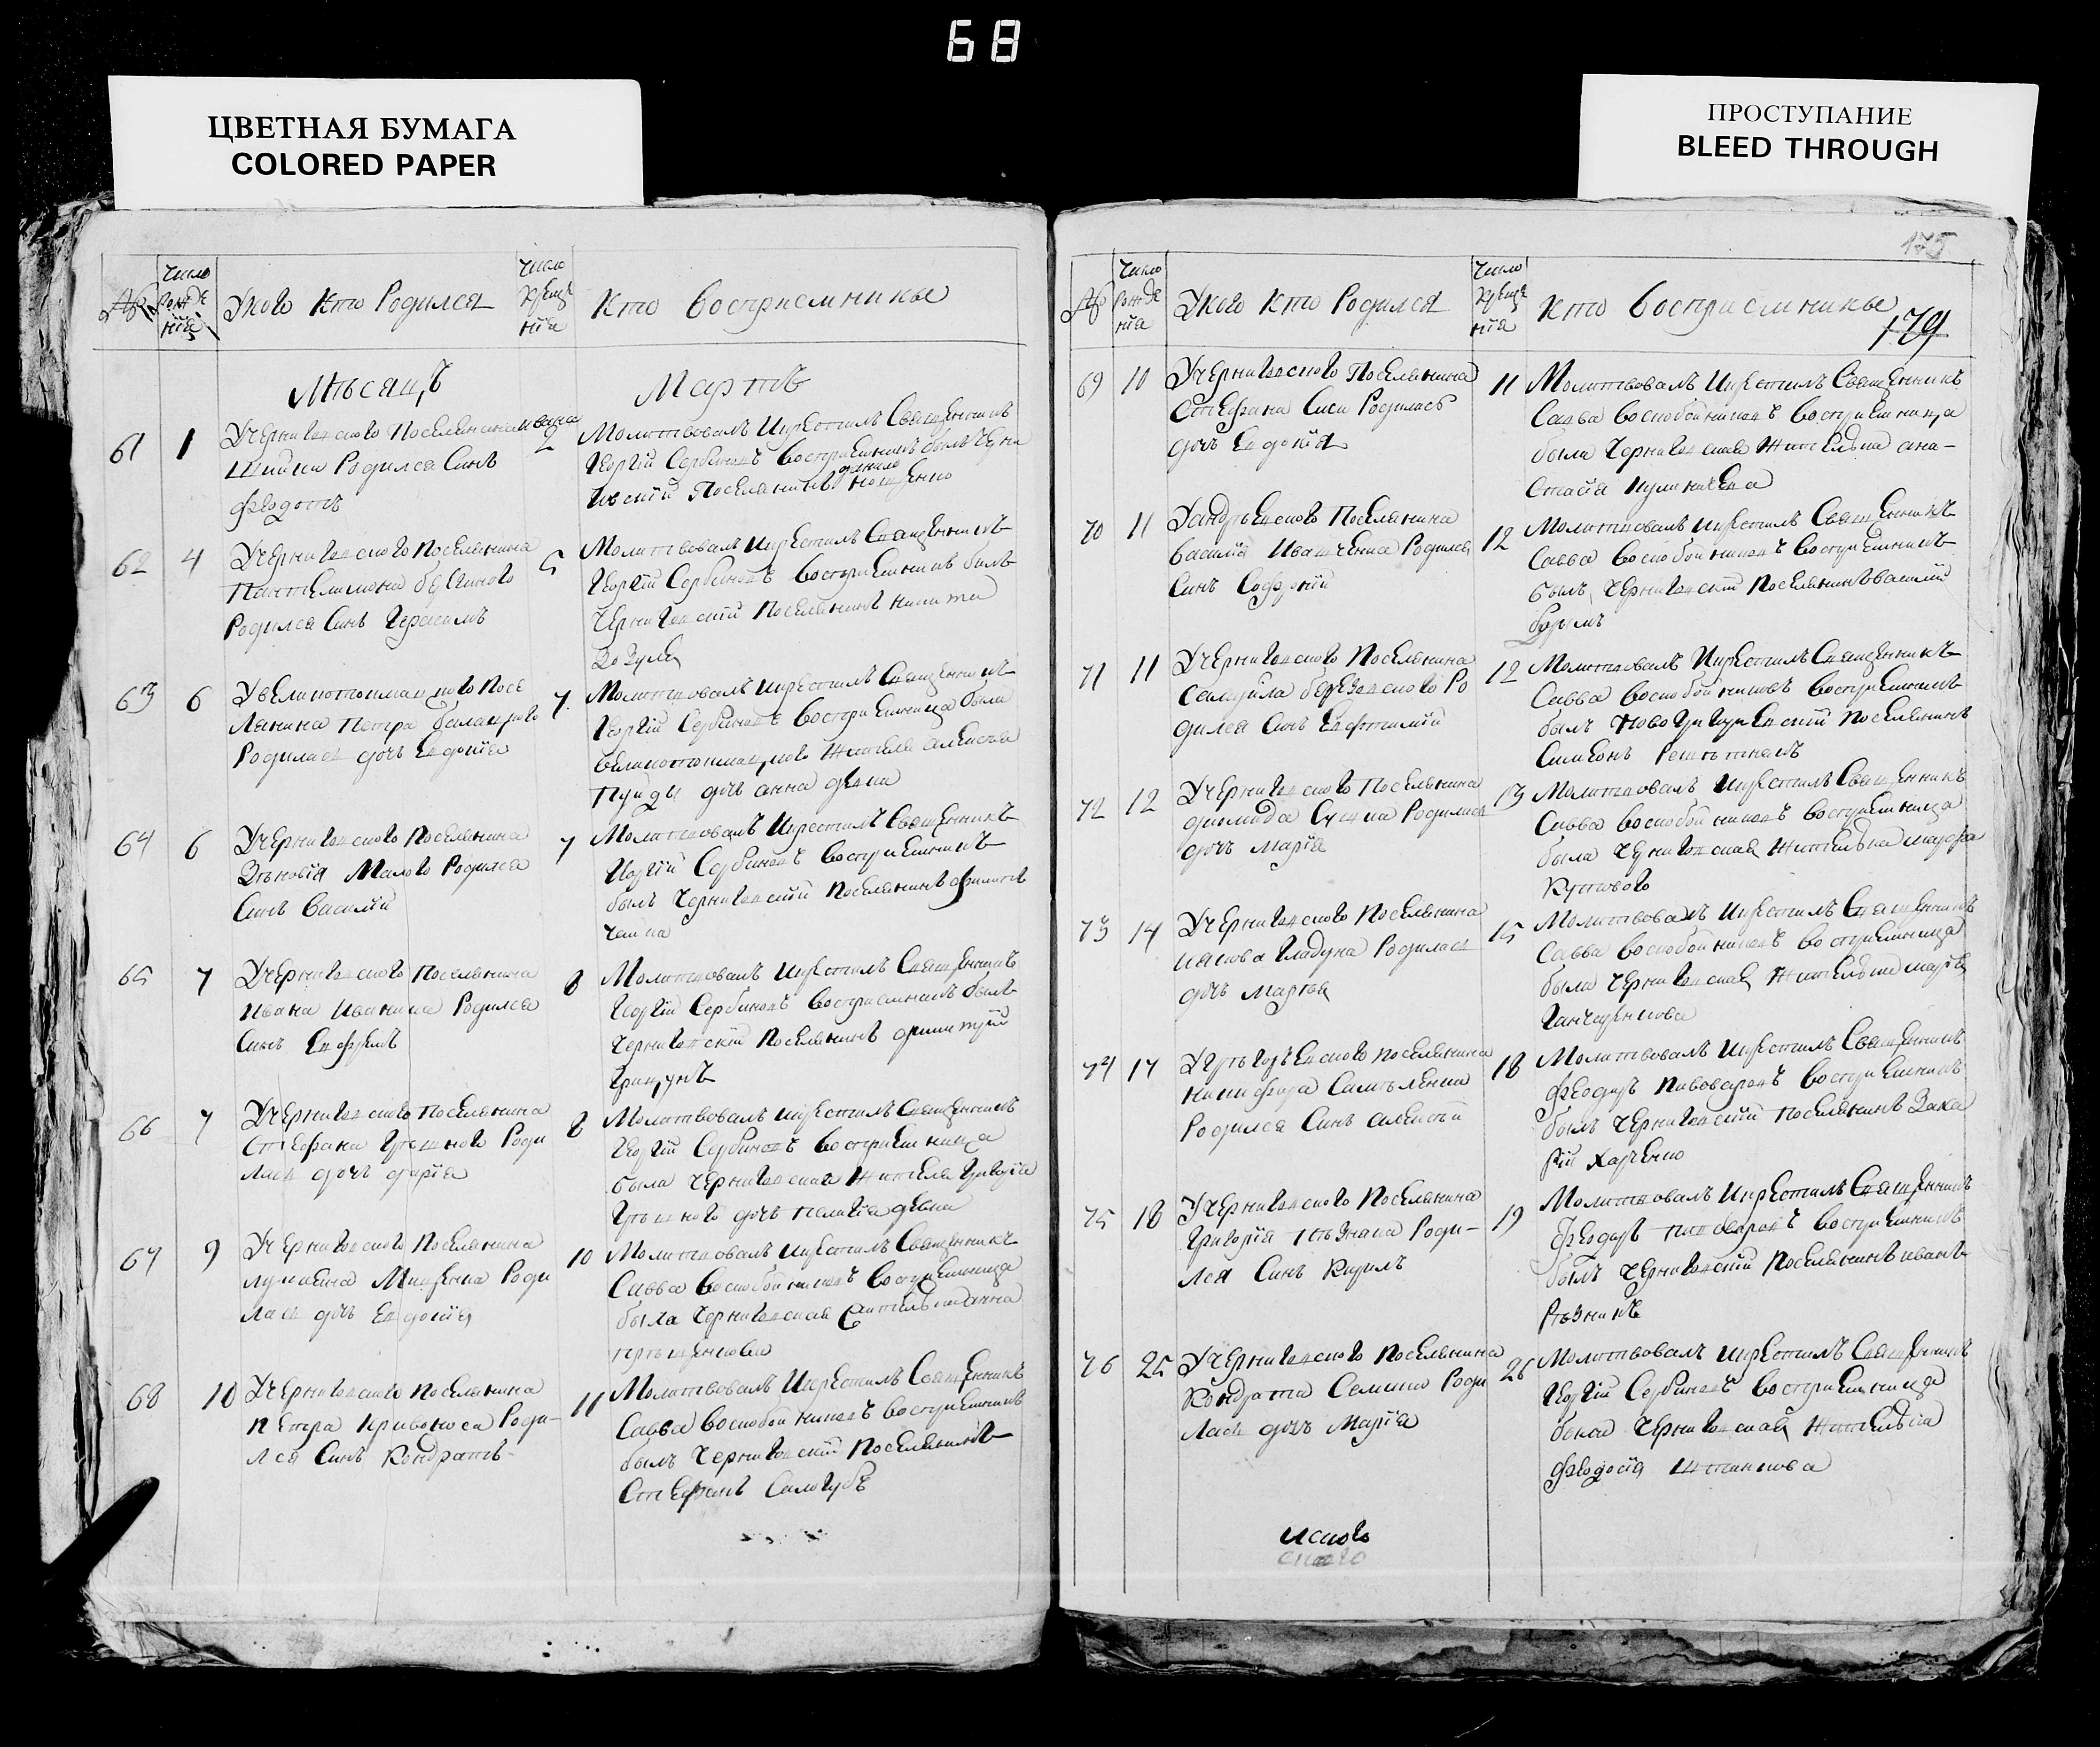 68
ЦВЕТНАЯ БУМАГА
COLORED PAPER
ПРОСТУПАНИЕ
BLEED THROUGH
№
Число рожденія
Укого кто Родился
Число крещенія
Кто восприемники
Мѣсяцъ
Мартъ
61
1
Учерниговского Поселянина ивана
Шийки Родился Синъ
Феодотъ
2
Молитвовалъ икрестилъ Священникъ
Георгій Сербиновъ восприемникъ былъ черни
говский Поселянинъ данило
62
4
Учерниговского поселянина
Пантелимона
Родился Синъ Герасимъ
5
Молитвовалъ икрестилъ Священникъ
Георгій Сербиновъ восприемникъ былъ
Черниговский поселянинъ никита
Зозуля
63
6
Увеликотокмацкого посе
лянина Петра Билацкого
Родилась дочь Евдокія
7
Молитвовалъ икрестилъ Священникъ
Георгій Сербиновъ восприемница была
великотокмацкого жителя алексея
дочь анна девка
64
6
Учерниговского поселянина
Зѣновія Малого Родился
Синъ Василій
7
Молитвовалъ икрестилъ Священникъ
Георгій Сербиновъ восприемникъ
былъ Черниговский поселянинъ филипъ
65
7
Учерниговского поселянина
ивана иваника Родился
Синъ Ефремъ
8
Молитвовалъ икрестилъ Священникъ
Георгій Сербиновъ восприемникъ былъ
Черниговскій поселянинъ димитрій
Грицунъ
66
7
Учерниговского поселянина
Стефана Грѣшного Роди
лась дочь дарія
8
Молитвовалъ икрестилъ Священникъ
Георгій Сербиновъ восприемница
была черниговскаго жителя Григорія
Грѣшного дочь пелагія девка
67
9
Учерниговского поселянина
лукьяна Мищенка Роди
лась дочь Евдокія
10
Молитвовалъ икрестилъ Священникъ
Савва воскобойниковъ восприемница
была черниговская анна
68
10
Учерниговского поселянина
петра кривоноса Роди-
лся Синъ Кондратъ
11
Молитвовалъ икрестилъ Священникъ
Савва воскобойниковъ восприемникъ
былъ черниговский поселянинъ
Стефанъ Салогубъ
175
№
Число рожденія
Укого кто Родился
Число крещенія
Кто восприемники
179
69
10
Учерниговского Поселянина
Стефана Сиси Родилась
дочь Евдокія
11
Молитвовалъ икрестилъ Священникъ
Савва воскобойниковъ восприемница
была черниговская жителька ана-
стасія куликова
70
11
Уандрѣевского поселянина
василія иващенка Родился
Синъ Софроній
12
Молитвовалъ икрестилъ Священникъ
Савва воскобойниковъ восприемникъ
былъ черниговский поселянинъ василий
71
11
Учерниговского поселянина
самуила березовского Ро
дился Синъ Евфтимій
12
Молитвовалъ икрестилъ Священникъ
Савва воскобойниковъ восприемникъ
былъ новогригориевский поселянинъ
Симеонъ Решѣтнякъ
72
12
Учерниговского поселянина
диомида Родилась
дочь Марія
13
Молитвовалъ икрестилъ Священникъ
Савва воскобойниковъ восприемница
была черниговская жителька марфа
Кутового
73
14
Учерниговского поселянина
иякова гладуна Родилась
дочь Марфа
15
Молитвовалъ икрестилъ Священникъ
Савва воскобойниковъ восприемница
была черниговская жителька
Ганчаренкова
74
17
поселянина
никифора Самѣленка
Родился Синъ алексѣй
18
Молитвовалъ икрестилъ Священникъ
феодоръ пивоваровъ восприемникъ
былъ черниговский поселянинъ Заха
рій Харченко
75
18
Учерниговского поселянина
Григорія рѣзника Роди-
лся Синъ Кирилъ
19
Молитвовалъ икрестилъ Священникъ
феодоръ пивоваровъ восприемникъ
былъ черниговский поселянинъ иванъ
Рѣзникъ
76
25
Учерниговского поселянина
Кондрата Сенина Роди
лась дочь Марія
26
Молитвовалъ икрестилъ Священникъ
Георгій Сербиновъ восприемница
была черниговская жителька
феодосія